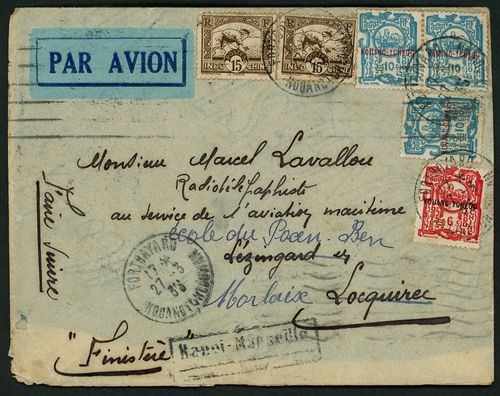 PAR AVION
RF
RF
15
15
INDOCHINE
INDOCHINE
KOUANG-TCHEOU
10
KOUANG-TCHEOU
10
KOUANG-TCHEOU
10
KOUANG-TCHEOU
6
Monsieur Marcel Lavallou
Radiotélégraphiste
au service de l'aviation maritime
école du Poan-Ben
Lézingard en
Morlaix Locquirec
"Finistère"
Faire Suivre
FORT BAYARD
27-3
36
KOUANG
Hanoi-Marseille